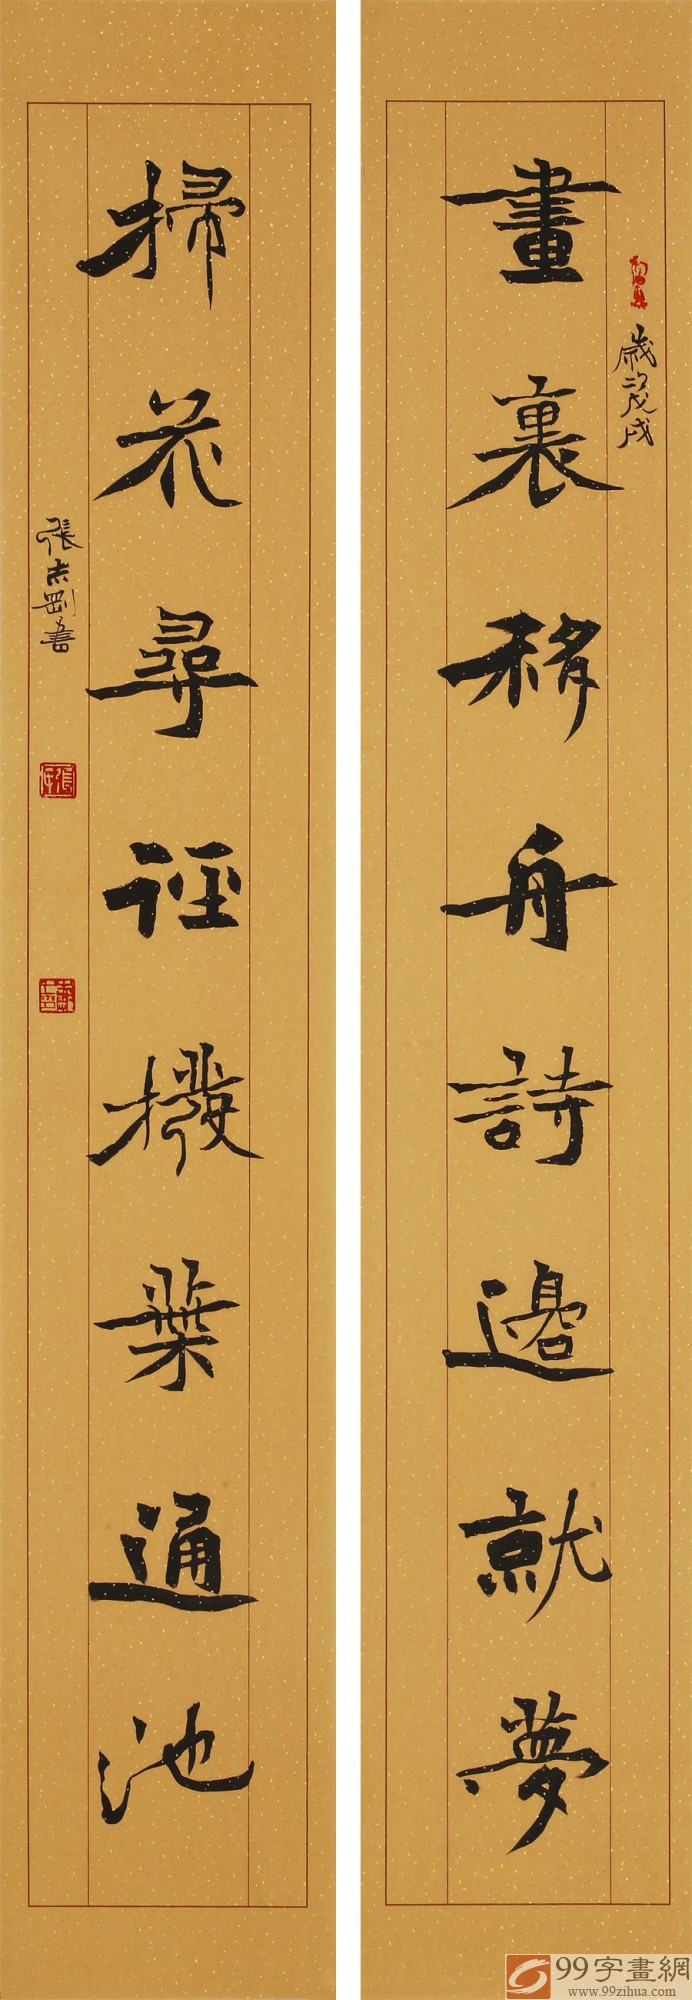 畫裏移舟詩邊就夢
歲次戊戌
掃花尋徑撥葉通池
張志剛書
99字畫網
www.99zihua.com